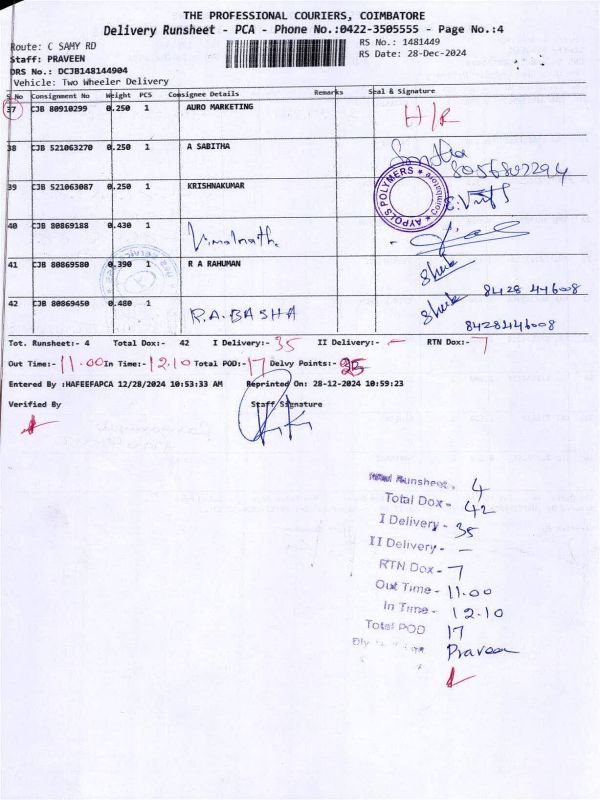 THE PROFESSIONAL COURIERS, COIMBATORE
Delivery Runsheet - PCA - Phone No.:0422-3505555 - Page No.:4
Route: C SAMY RD
RS No.: 1481449
Staff: PRAVEEN
RS Date: 28-Dec-2024
DRS No.: DCJB148144904
Vehicle: Two Wheeler Delivery
S.No Consignment No Weight PCS Consignee Details Remarks Seal & Signature
37 CJB 80910299 0.250 1 AURO MARKETING H/R
38 CJB 521063270 0.250 1 A SABITHA
8056807294
39 CJB 521063087 0.250 1 KRISHNAKUMAR
AYPOLS POLYMERS ★ Coimbatore ★
40 CJB 80869188 0.430 1 Vimalnath.
41 CJB 80869580 0.390 1 R A RAHUMAN
8428 446008
42 CJB 80869450 0.480 1 R.A.BASHA
8428446008
Tot. Runsheet:- 4 Total Dox:- 42 I Delivery:- 35 II Delivery:- – RTN Dox:- 7
Out Time:- 11.00 In Time:- 12.10 Total POD:- 17 Delvy Points:-
Entered By :HAFEEFAPCA 12/28/2024 10:53:33 AM Reprinted On: 28-12-2024 10:59:23
Verified By Staff Signature
Runsheet - 4
Total Dox - 42
I Delivery - 35
II Delivery - –
RTN Dox - 7
Out Time - 11.00
In Time - 12.10
Total POD 17
Praveen